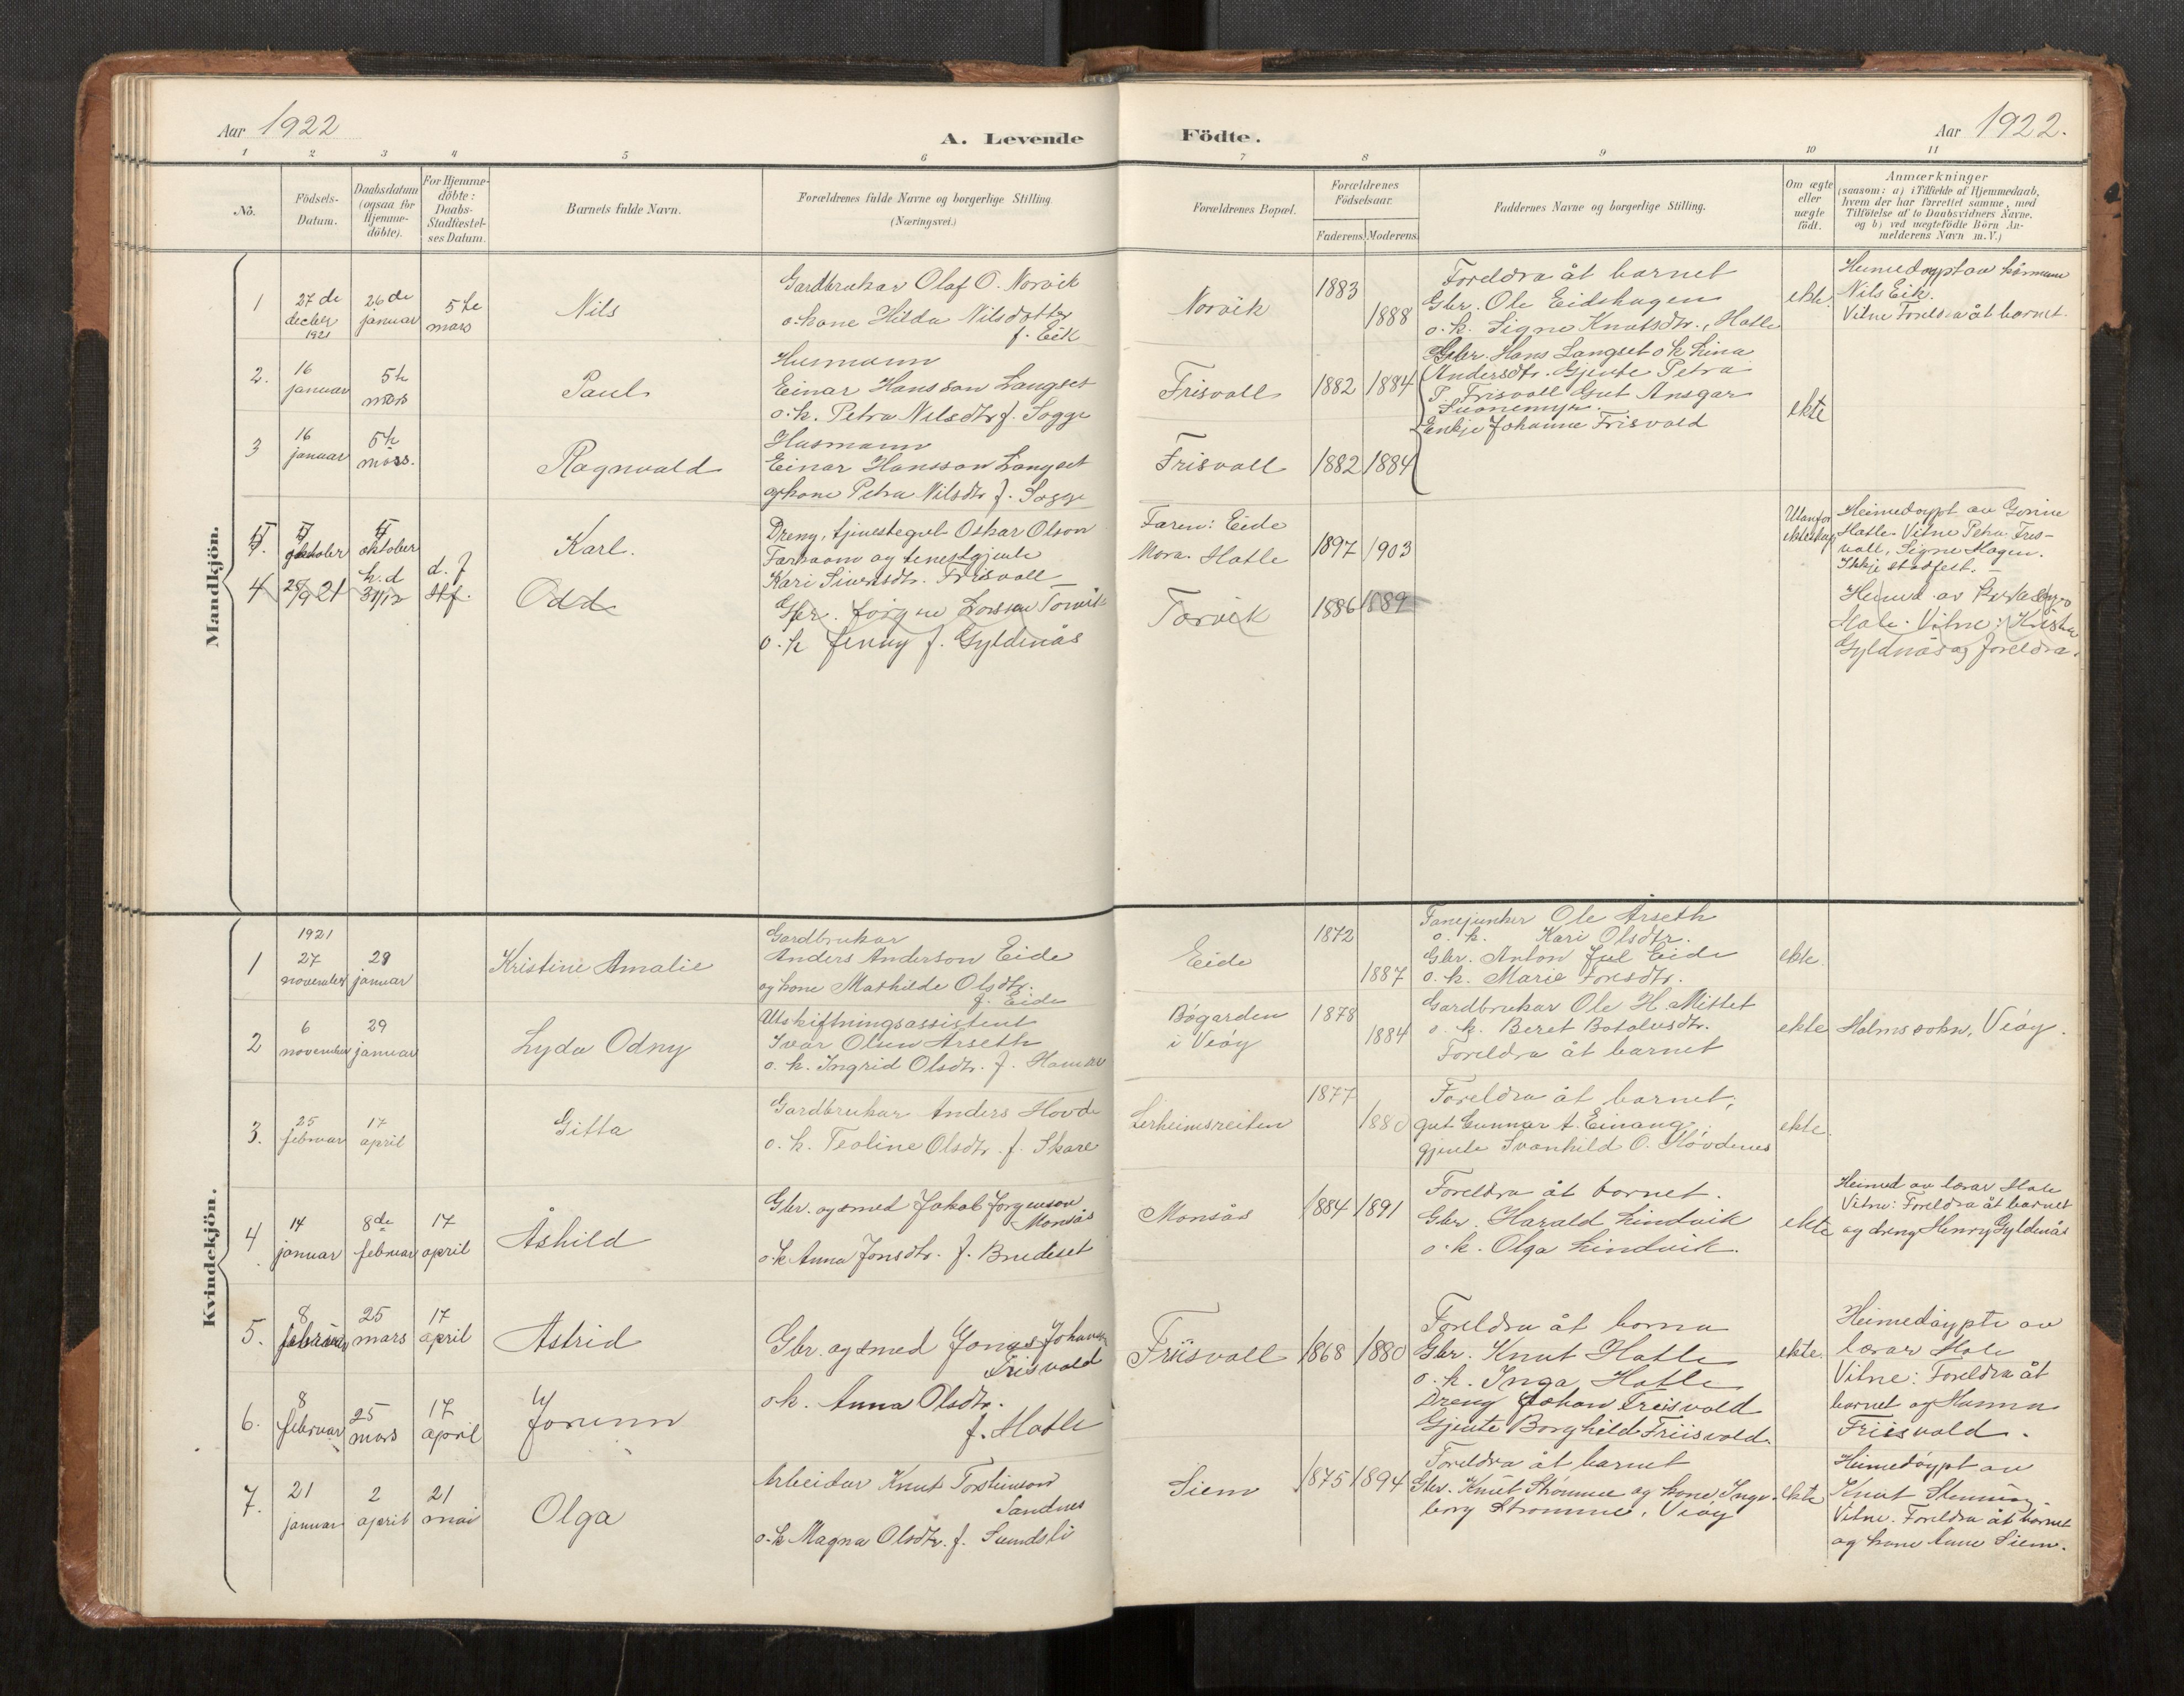 Aar 1922
A. Levende Fødte.
Aar 1922.
1 2 3 4 5 6 7 8 9 10 11
No.
Födsels-
Datum.
Daabsdatum
(ogsaa for
Hjemme-
döbte).
For Hjemme-
döbte:
Daabs-
Stadfæstel-
ses Datum.
Barnets fulde Navn.
Forældrenes fulde Navne og borgerlige Stilling
(Næringsvei.)
Forældrenes Bopæl.
Forældrenes
Födselsaar.
Faderens. Moderens.
Faddernes Navne og borgerlige Stilling.
Om ægte
eller
uægte
födt.
Anmærkninger
(saasom: a) i Tilfælde af Hjemmedaab,
hvem der har forrettet samme, med
Tilföielse af to Daabsvidners Navne.
og b) ved uægtefödte Börn An-
melderens Navn m. V.)
Mandkjön.
1
27 de
decbr
1921
26 de
januar
5te
mars
Nils
Gardbrukar Olaf O. Norvik
o. kone Hilda Nilsdotter
f. Eik
Norvik
1883
1888
Foreldra åt barnet
Gbr. Ole Eidshagen
o. k. Signe Knutsdtr. Hatle
ekte.
Heimedøypt av
Nils Eik.
Vitne Foreldra åt barnet.
2.
16
januar
5te
mars
Paul
Husmann
Einar Hansson Langset
o. k. Petra Nilsdtr f. Sogge
Frisvoll
1882 1884
Gbr. Hans Langset o k Lina
Andersdtr. Gjente Petra
P. Frisvoll Gut Ansgar
Enkje Johanne Frisvold
ekte
3
16
januar
5te
mars.
Ragnvald
Husmann
Einar Hansson Langset
og kone Petra Nilsdtr f. Sogge
Frisvoll
1882 1884
oktober
oktober
Karl.
Dreng, tjenestegut Oskar Olson
og tenestgjente
Kari Sivertsdtr. Frisvoll
Faren: Eide
Mora. Hatle
1897 1903
Utanfor
ekteskap
Heimedøypt av
Hatle. Vitne Petra Fris-
voll, Signe Hagen.
Ikkje stadfest.
4
28/9 21
h. d
31/12
d. f
stf.
Odd
Gbr. Jørgen Larsson Torvik
o. k Jenny f. Gyldenås
Torvik
1886 1889
Heimd. av
Hole. Vitne: Kristen
Gyldnås og foreldra.
Kvindekjön.
1
1921
27
november
29
januar
Kristine Amalie
Gardbrukar
Anders Anderson Eide
og kone Mathilde Olsdtr.
f. Eide
Eide
1872
1887
Fanejunker Ole Årseth
o. k. Kari Olsdtr.
Gbr. Anton Jul Eide
o. k. Marie Toresdtr.
ekte.
2
6
november
29
januar
Lyda Odny
Utskiftningsassistent
Ivar Olsen Årseth
o. k. Ingrid Olsdtr. f. Hamar
Bøgarden
i Veøy
1878
1884
Gardbrukar Ole H. Mittet
o. k. Beret Botolvsdtr.
Foreldra åt barnet
ekte
Holms sokn, Veøy.
3.
25
februar
17
april
Gitta
Gardbrukar Anders Hovde
o. k. Teoline Olsdtr. f. Skare
Lerheimsreiten
1877
1880
Foreldra åt barnet;
gut Gunnar A. Einang;
gjente Svanhild O. Hovdenes
ekte.
4
14
januar
8de
februar
17
april
Åshild
Gbr. og smed Jakob Jørgenson
Monsås
o. k Anna Jonsdtr. f. Bredeset
Monsås
1884 1891
Foreldra åt barnet.
Gbr. Harald Lindvik
o. k. Olga Lindvik.
ekte
Heimed av lærar Hole
Vitne: Foreldra åt barnet
og dreng Henry Gyldenås
5.
8
februar
25
mars
17
april
Astrid
Gbr. og smed Jonas Johansen
Frisvold
Friisvoll
1868 1880
Foreldra åt borna
Gbr. Knut Hatle
o. k. Inga Hatle
Dreng Johan Friisvold
Gjente Borghild Friisvold.
ekte.
Heimedøypte av
lærar Hole
Vitne: Foreldra åt
barnet og Hanna
Friisvold.
6.
8
februar
25
mars
17
april
Jorunn
o. k. Anna Olsdtr.
f. Hatle
7.
21
januar
2
april
21
mai
Olga
Arbeidar Knut Torsteinson
Sandnes
o. k Magna Olsdtr. f. Sundsli
Siem
1875 1894
Foreldra åt barnet
Gbr. Knut Strømme og kone Inge-
borg Strømme, Veøy
ekte
Heimedøypt av
Knut
Vitne. Foreldra åt barnet
og kone Anne Siem.